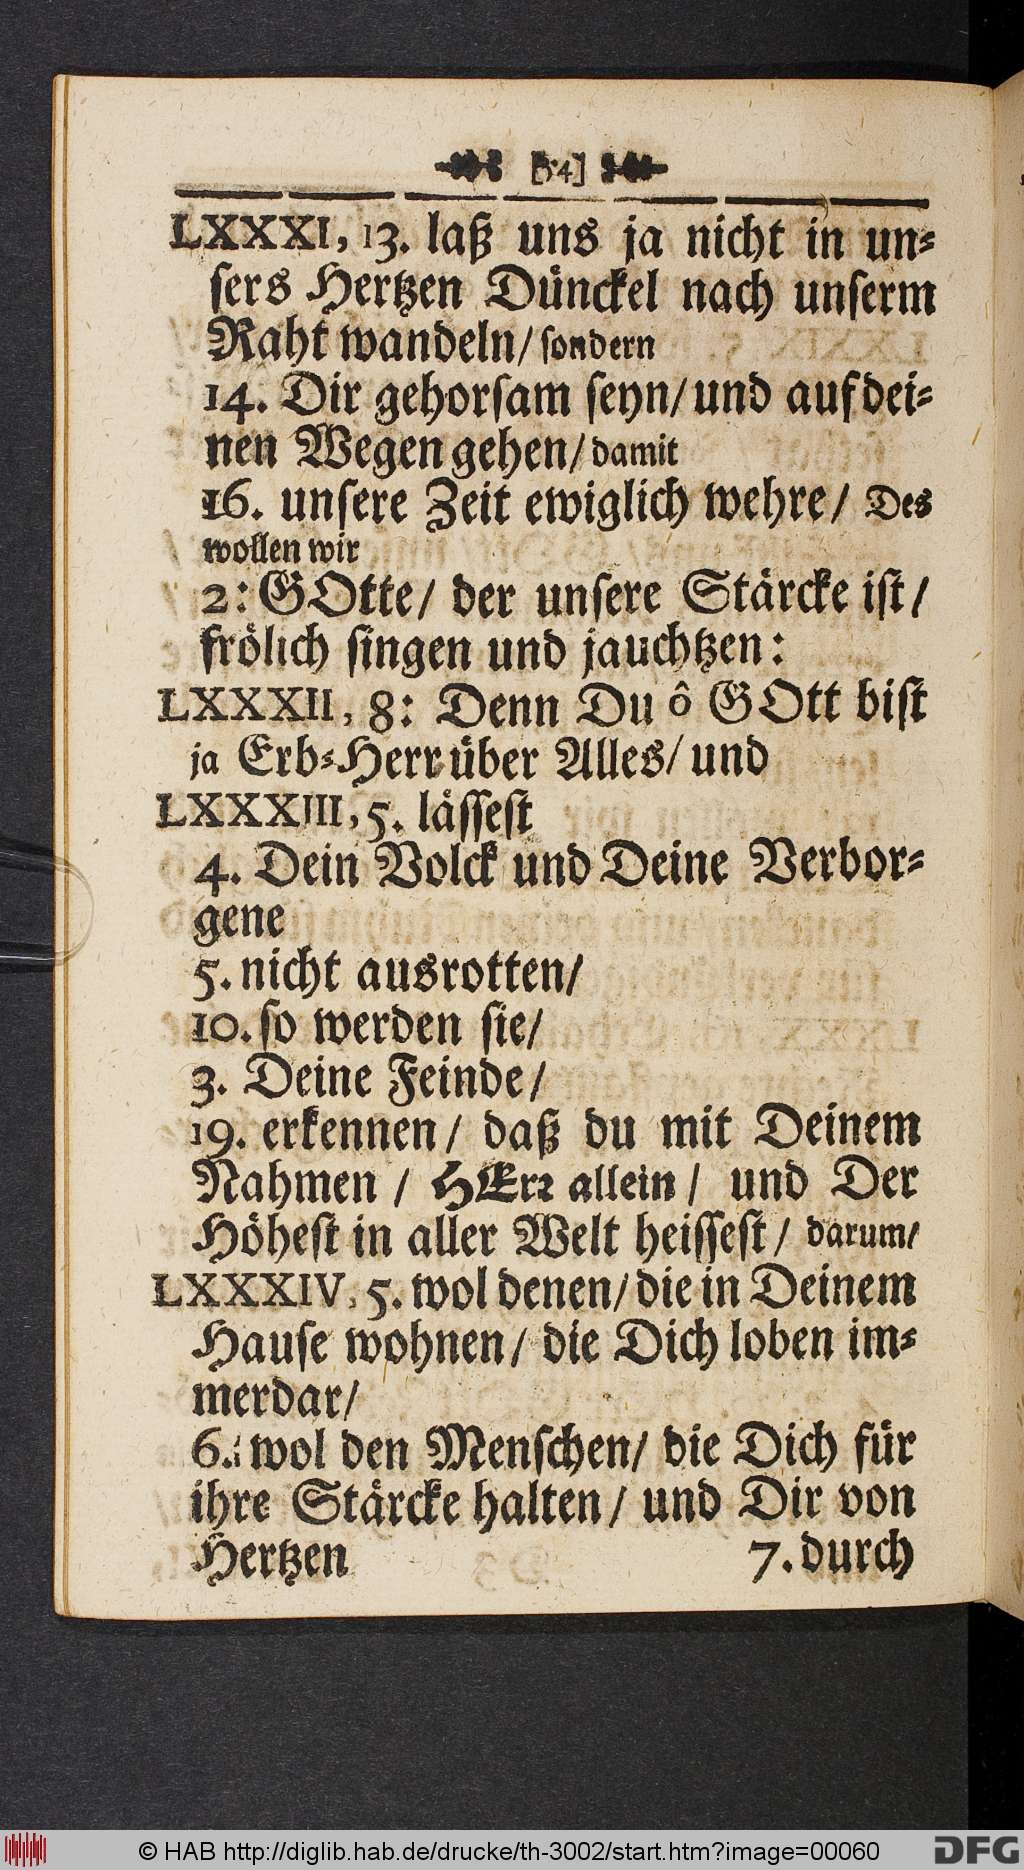 [54]
LXXXI, 13. laß uns ja nicht in un⸗
ſers Hertzen Dünckel nach unſerm
Raht wandeln/ ſondern
14. Dir gehorſam ſeyn/ und auf dei⸗
nen Wegen gehen/ damit
16. unſere Zeit ewiglich wehre/ Des
wollen wir
2: GOtte/ der unſere Stärcke iſt/
frölich ſingen und jauchtzen:
LXXXII, 8: Denn Du ô GOtt biſt
ja Erb⸗Herr über Alles/ und
LXXXIII, 5. läſſeſt
4. Dein Volck und Deine Verbor⸗
gene
5. nicht ausrotten/
10. ſo werden ſie/
3. Deine Feinde/
19. erkennen/ daß du mit Deinem
Nahmen / HErr allein / und Der
Höheſt in aller Welt heiſſeſt/ darum/
LXXXIV, 5. wol denen/ die in Deinem
Hauſe wohnen/ die Dich loben im⸗
merdar/
6. wol den Menſchen/ die Dich für
ihre Stärcke halten/ und Dir von
Hertzen 7. durch
© HAB http://diglib.hab.de/drucke/th-3002/start.htm?image=00060
DFG